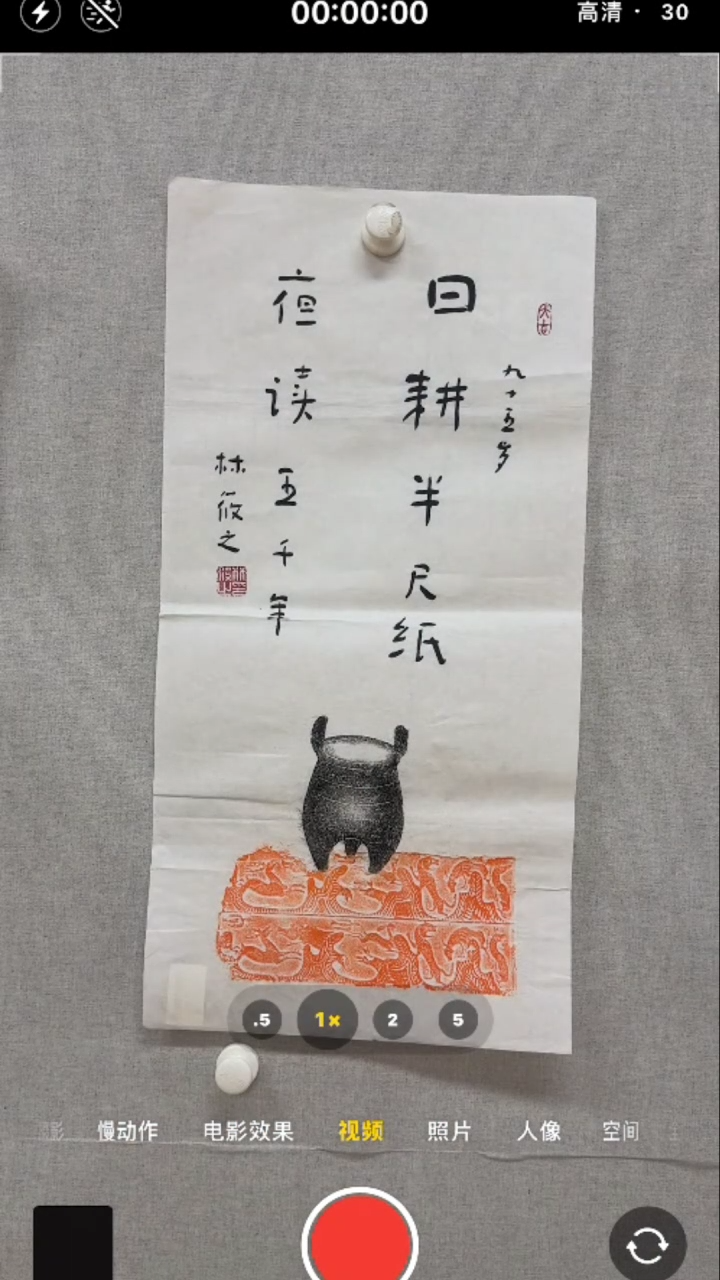 00:00:00
高清 · 30
日耕半尺纸
夜读五千年
九十五岁
林筱之
.5
1×
2
5
慢动作
电影效果
视频
照片
人像
空间